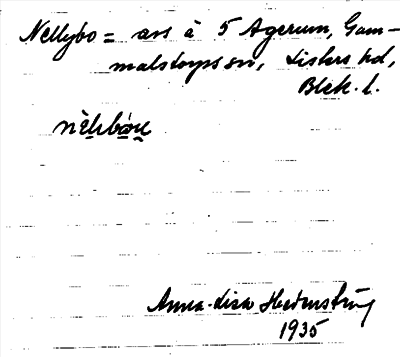 Nellybo = avs à 5 Agerum, Gam-
malstorps sn, Listers hd,
Blek. l.
Anna-Lisa Hedenström
1935